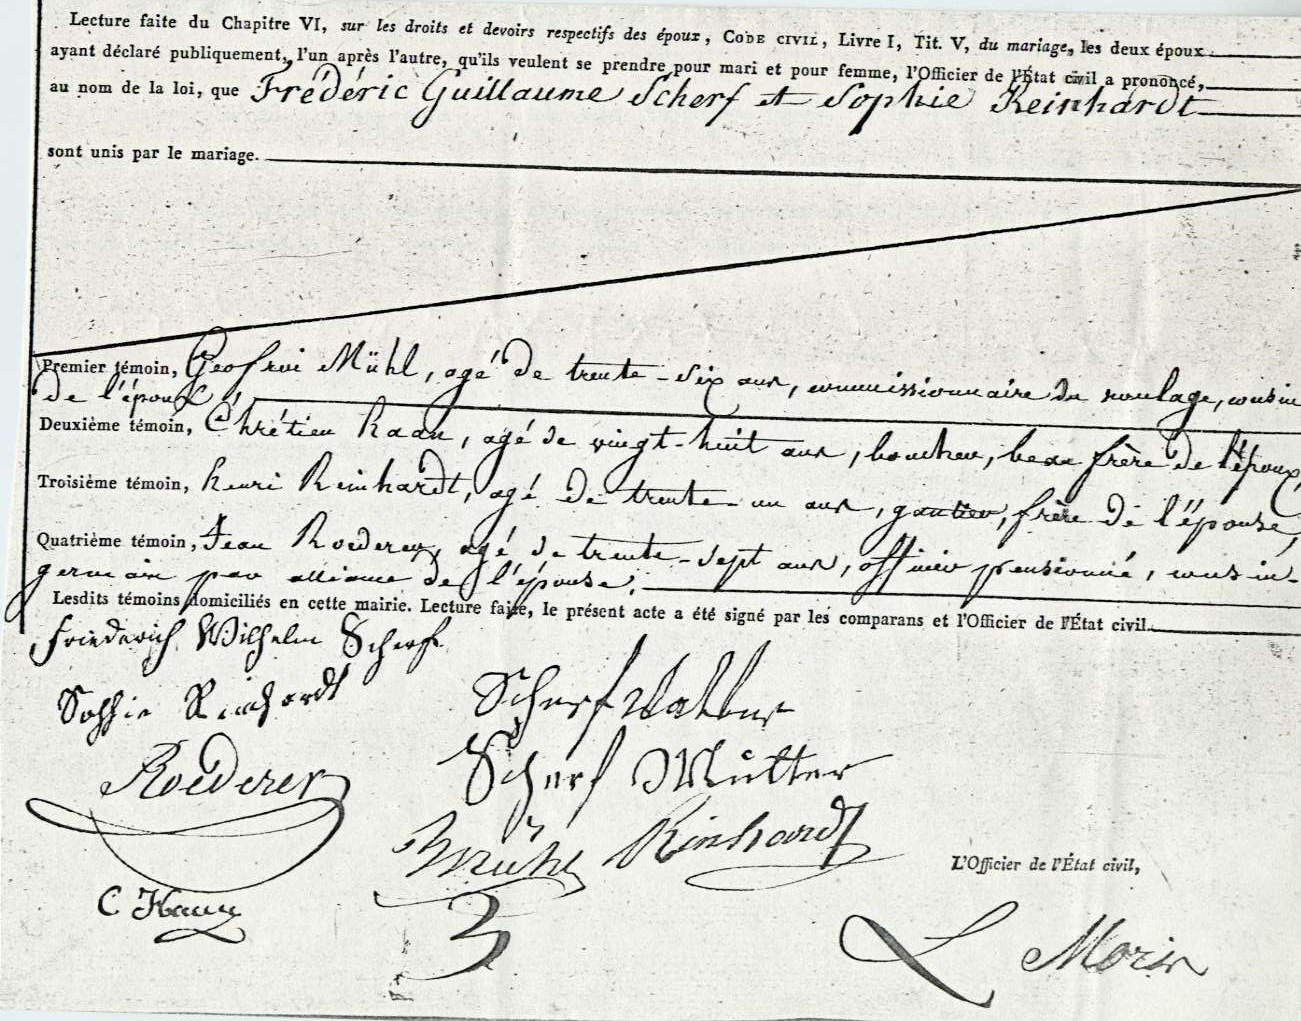 Lecture faite du Chapitre VI, sur les droits et devoirs respectifs des époux, CODE CIVIL, Livre I, Tit. V, du mariage, les deux époux
ayant déclaré publiquement, l'un après l'autre, qu'ils veulent se prendre pour mari et pour femme, l'Officier de l'État civil a prononcé,
au nom de la loi, que Frédéric Guillaume Scherf et Sophie Reinhardt
sont unis par le mariage.
Premier témoin, Geofroi Mühl, agé de trente-six ans, commissionnaire de roulage, cousin
de l'époux;
Deuxième témoin, Chrétien Haan, agé de vingt-huit ans, boucher, beau frère de l'époux,
Troisième témoin, henri Reinhardt, agé de trente-un ans, gantier, frère de l'épouse,
Quatrième témoin, Jean Roederer, agé de trente-sept ans, officier pensionné, cousin-
germain par alliance de l'épouse;
Lesdits témoins domiciliés en cette mairie. Lecture faite, le présent acte a été signé par les comparans et l'Officier de l'État civil.
Friederich Wilhelm Scherf
Sophie Reinhardt
Scherf Vatter
Scherf Mutter
Roederer
Mühl
Reinhardt
L'Officier de l'État civil,
C Haan
L Morin